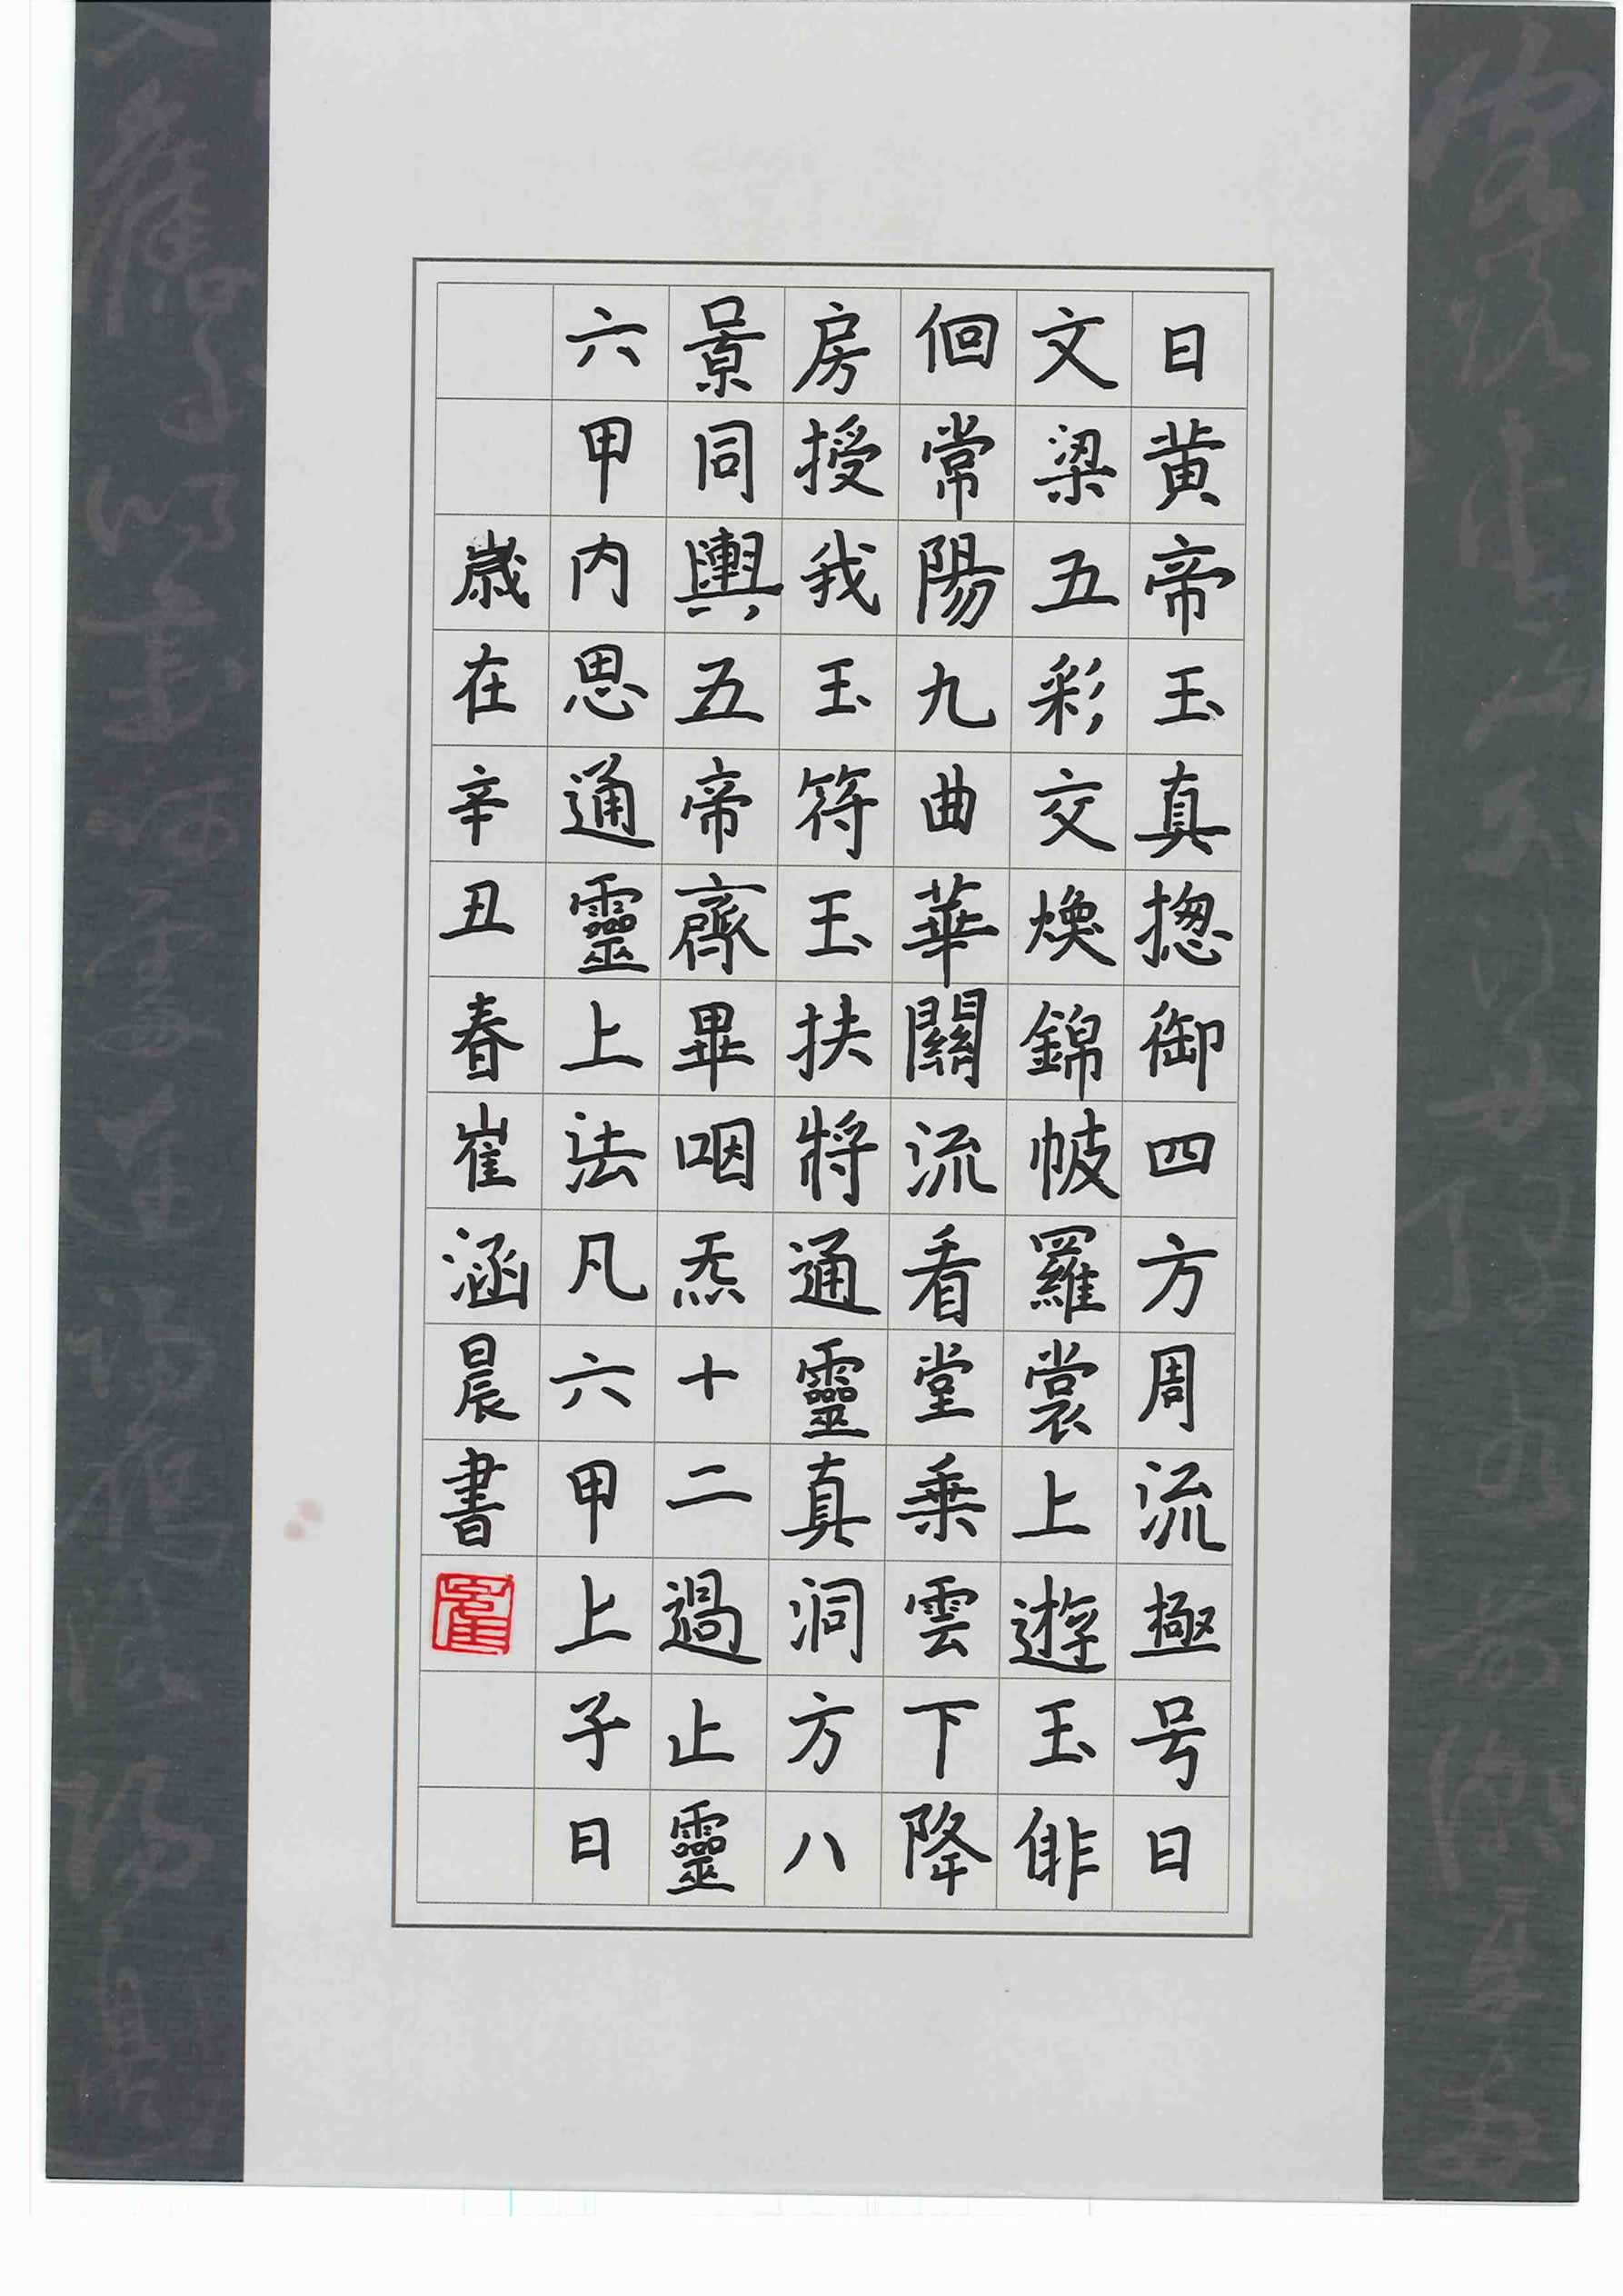 日黄帝玉真揔御四方周流極号日
文梁五彩交煥錦帔羅裳上遊玉俳
佪常陽九曲華關流看堂乗雲下降
房授我玉符玉扶將通靈真洞方八
景同輿五帝齊畢咽炁十二過止靈
六甲内思通靈上法凡六甲上子日
歳在辛丑春崔涵晨書
崔